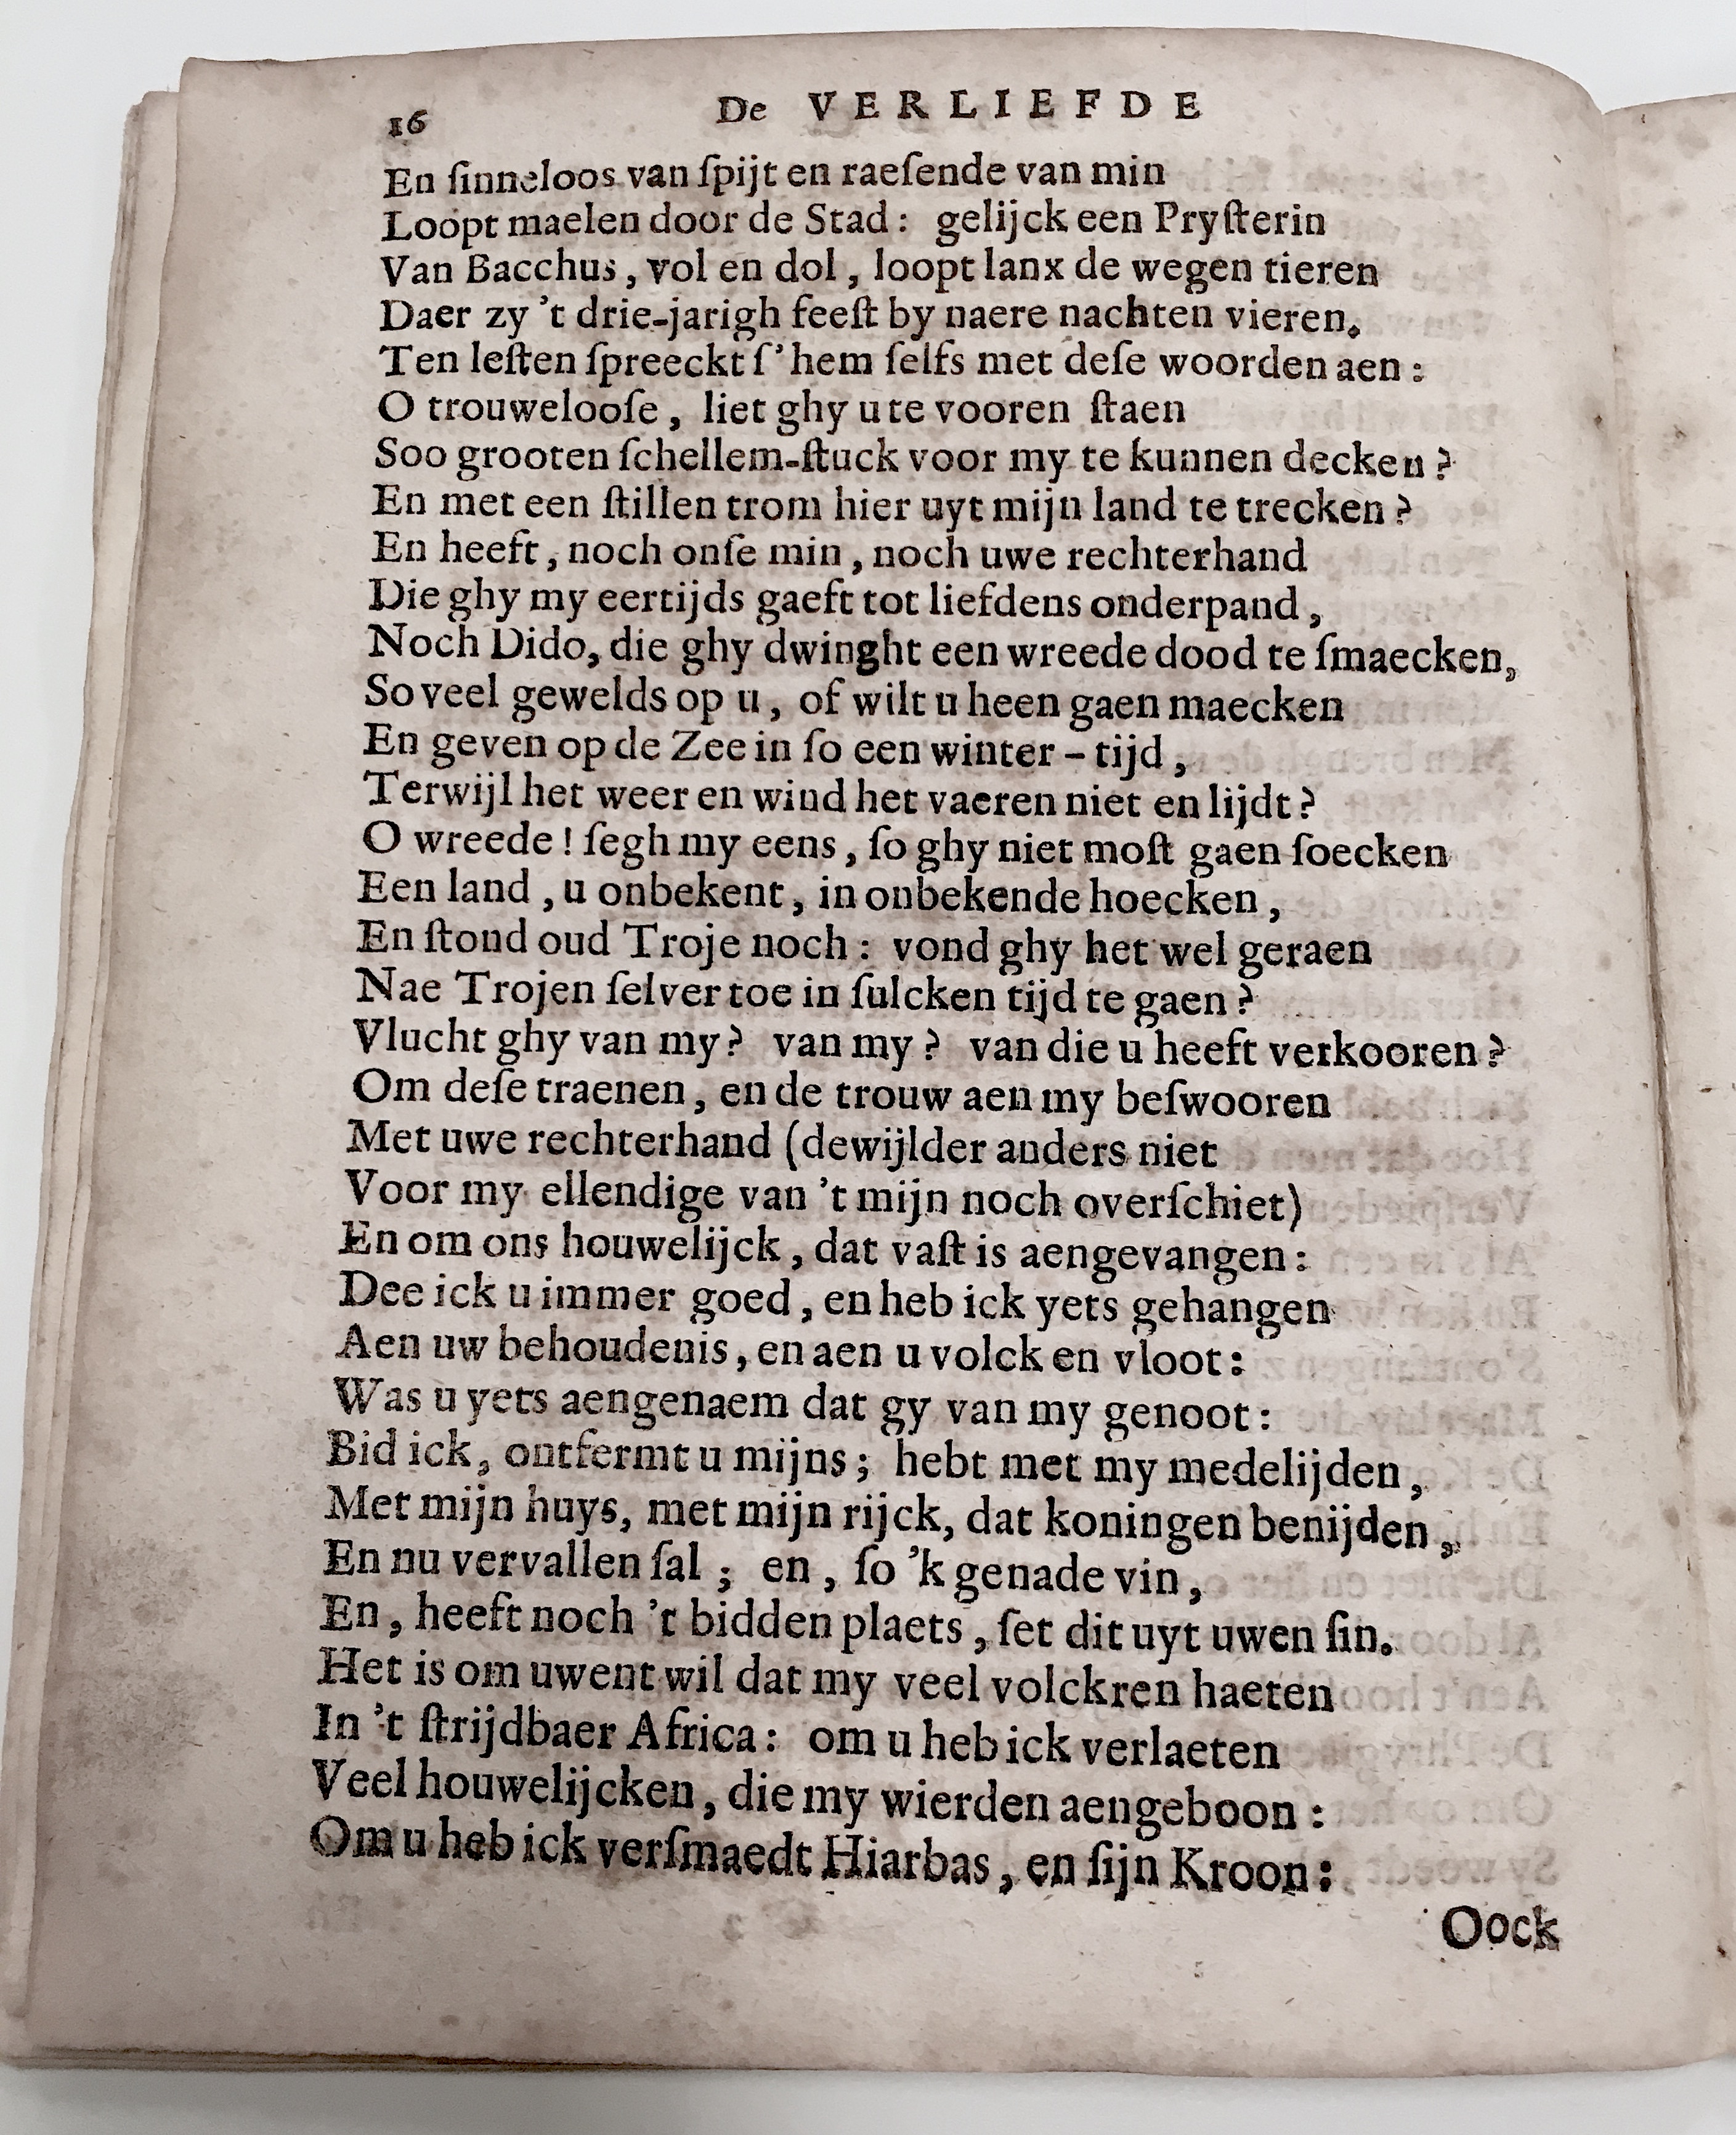 16 De VERLIEFDE
En ſinneloos van ſpijt en raeſende van min
Loopt maelen door de Stad: gelijck een Pryſterin
Van Bacchus, vol en dol, loopt lanx de wegen tieren
Daer zy 't drie-jarigh feeſt by naere nachten vieren.
Ten leſten ſpreeckt ſ'hem ſelfs met deſe woorden aen:
O trouwelooſe, liet ghy u te vooren ſtaen
Soo grooten ſchellem-ſtuck voor my te kunnen decken?
En met een ſtillen trom hier uyt mijn land te trecken?
En heeft, noch onſe min, noch uwe rechterhand
Die ghy my eertijds gaeft tot liefdens onderpand,
Noch Dido, die ghy dwinght een wreede dood te ſmaecken,
So veel gewelds op u, of wilt u heen gaen maecken
En geven op de Zee in ſo een winter-tijd,
Terwijl het weer en wind het vaeren niet en lijdt?
O wreede! ſegh my eens, ſo ghy niet moſt gaen ſoecken
Een land, u onbekent, in onbekende hoecken,
En ſtond oud Troje noch: vond ghy het wel geraen
Nae Trojen ſelver toe in ſulcken tijd te gaen?
Vlucht ghy van my? van my? van die u heeft verkooren?
Om deſe traenen, en de trouw aen my beſwooren
Met uwe rechterhand (dewijlder anders niet
Voor my ellendige van 't mijn noch overſchiet)
En om ons houwelijck, dat vaſt is aengevangen:
Dee ick u immer goed, en heb ick yets gehangen
Aen uw behoudenis, en aen u volck en vloot:
Was u yets aengenaem dat gy van my genoot:
Bid ick, ontfermt u mijns; hebt met my medelijden,
Met mijn huys, met mijn rijck, dat koningen benijden,
En nu vervallen ſal; en, ſo 'k genade vin,
En, heeft noch 't bidden plaets, ſet dit uyt uwen ſin.
Het is om uwent wil dat my veel volckren haeten
In 't ſtrijdbaer Africa: om u heb ick verlaeten
Veel houwelijcken, die my wierden aengeboon:
Om u heb ick verſmaedt Hiarbas, en ſijn Kroon:
Oock